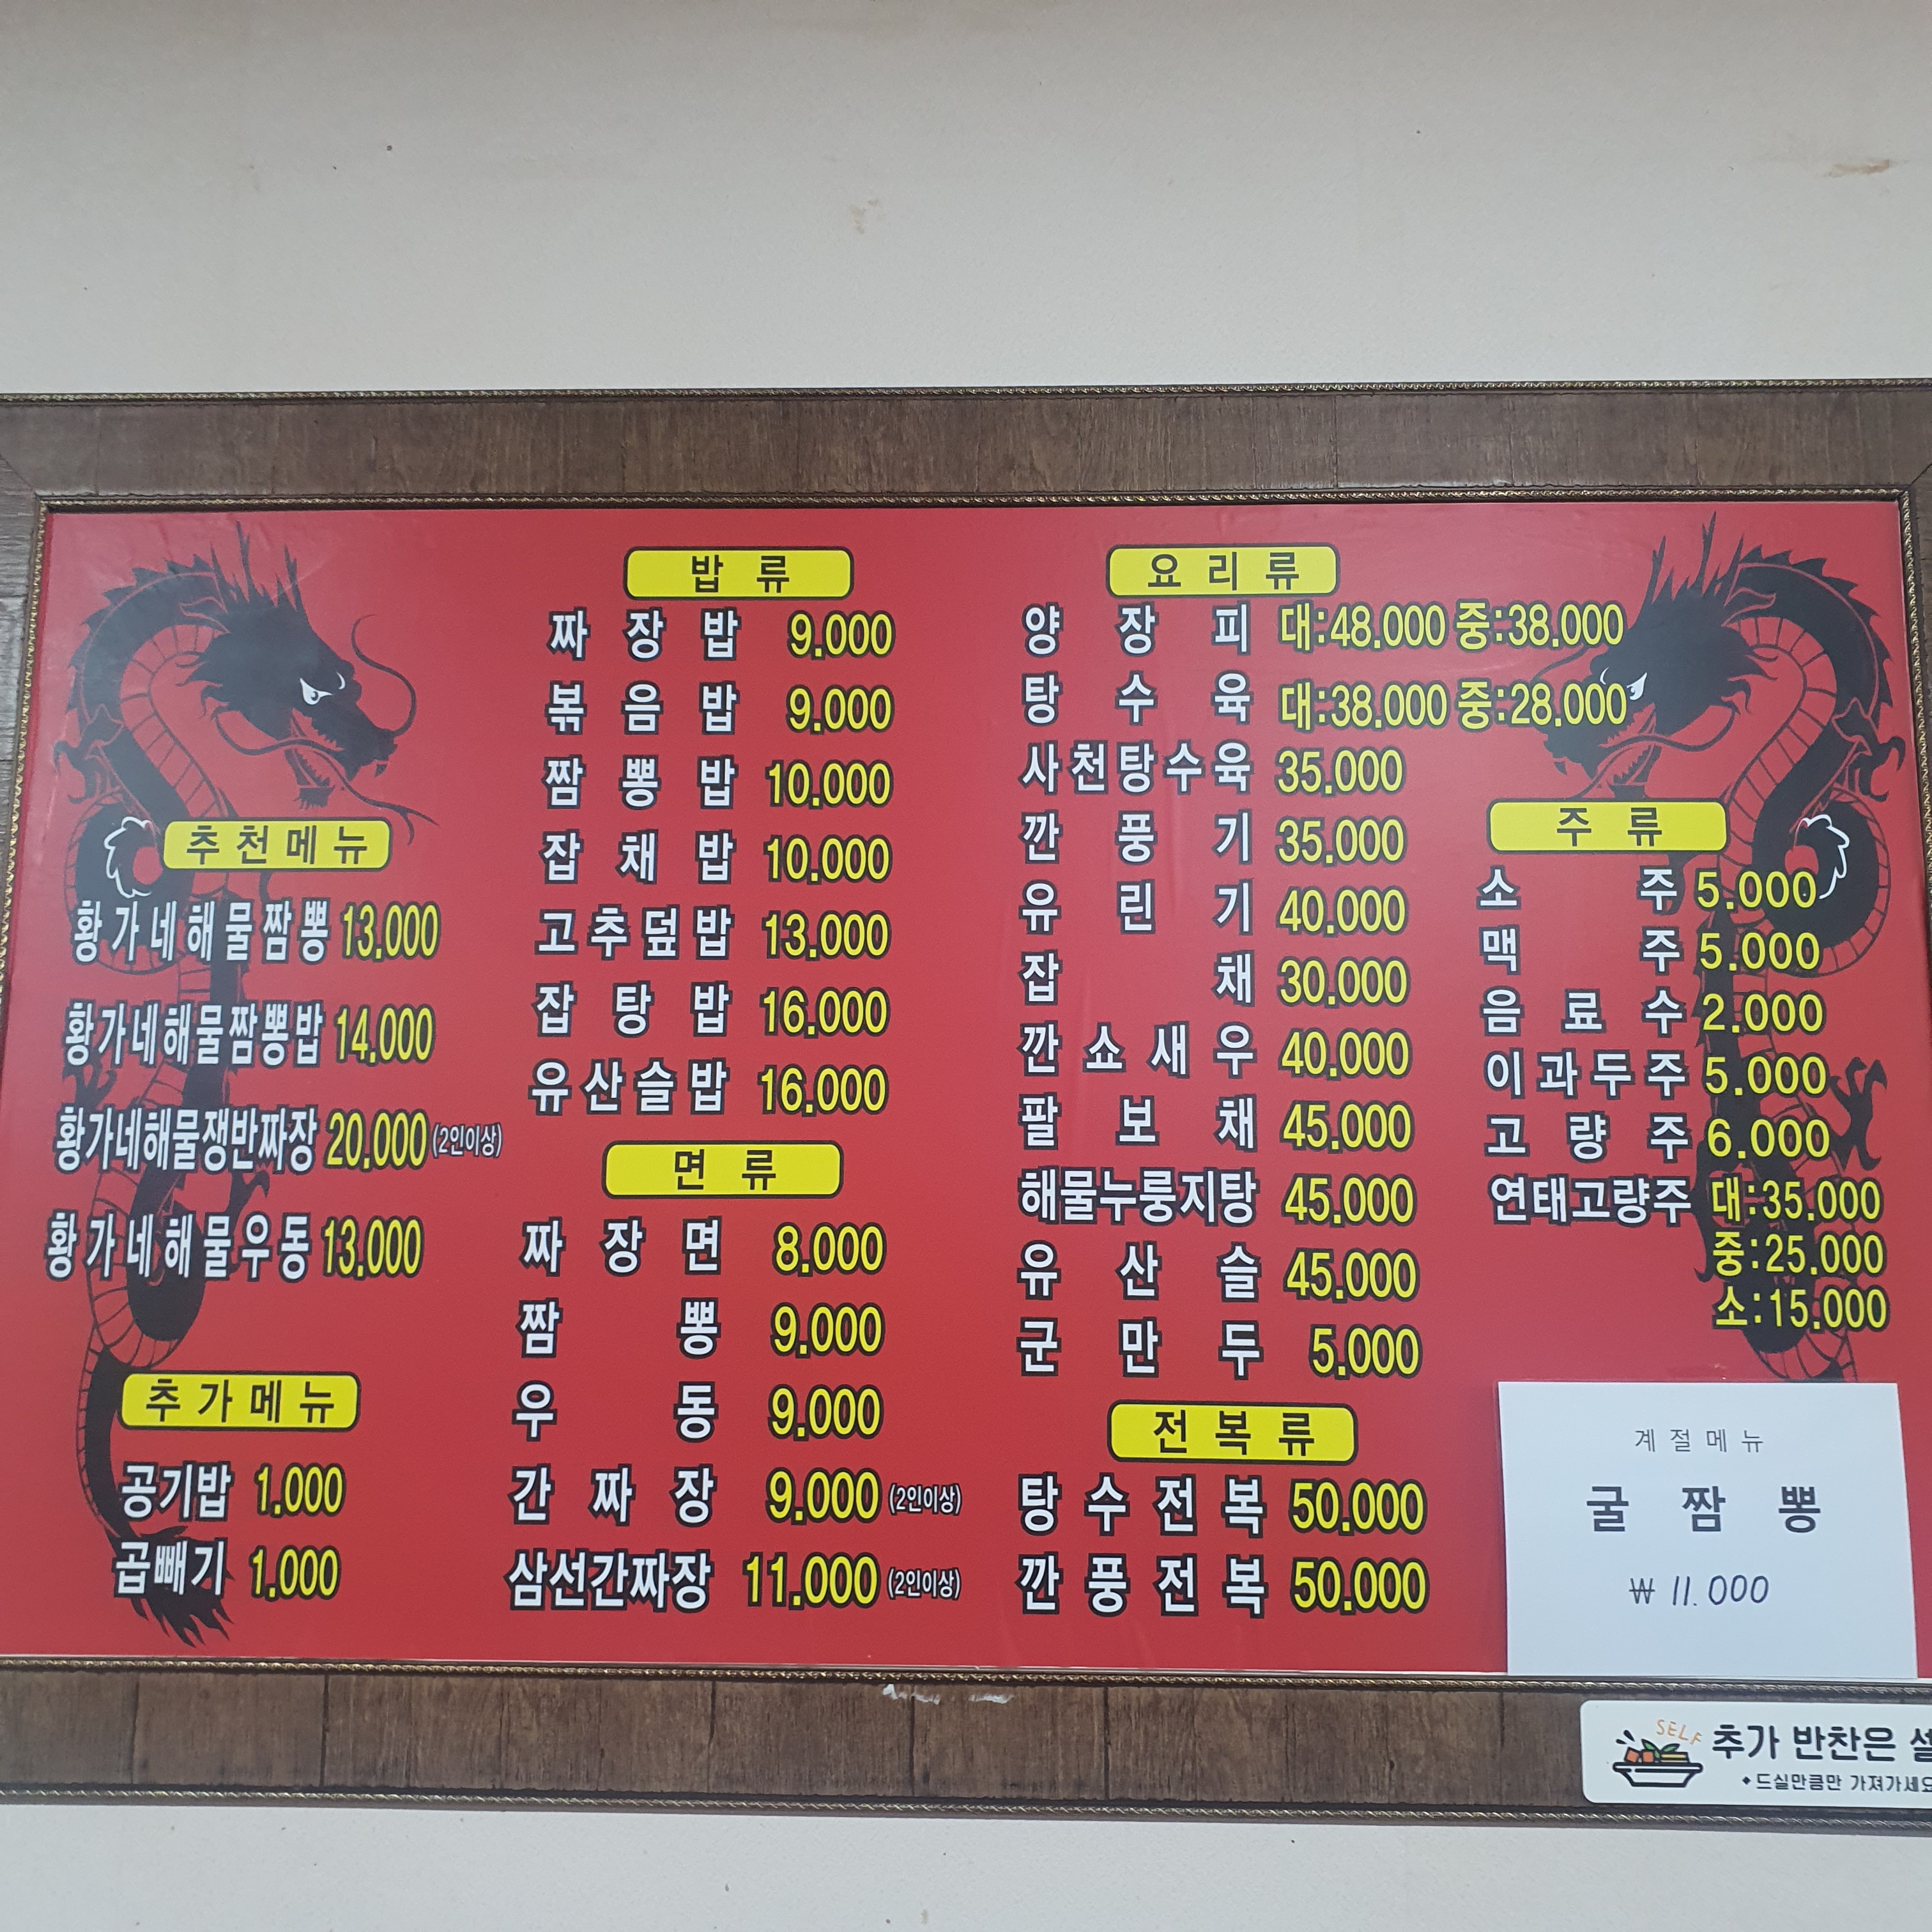 추천메뉴
황가네해물짬뽕 13.000
황가네해물짬뽕밥 14.000
황가네해물쟁반짜장 20.000 (2인이상)
황가네해물우동 13.000
추가메뉴
공기밥 1.000
곱빼기 1.000
밥류
짜장밥 9.000
볶음밥 9.000
짬뽕밥 10.000
잡채밥 10.000
고추덮밥 13.000
잡탕밥 16.000
유산슬밥 16.000
면류
짜장면 8.000
짬뽕 9.000
우동 9.000
간짜장 9.000 (2인이상)
삼선간짜장 11.000 (2인이상)
요리류
양장피 대:48.000 중:38.000
탕수육 대:38.000 중:28.000
사천탕수육 35.000
깐풍기 35.000
유린기 40.000
잡채 30.000
깐쇼새우 40.000
팔보채 45.000
해물누룽지탕 45.000
유산슬 45.000
군만두 5.000
전복류
탕수전복 50.000
깐풍전복 50.000
주류
소주 5.000
맥주 5.000
음료수 2.000
이과두주 5.000
고량주 6.000
연태고량주 대:35.000
중:25.000
소:15.000
계절메뉴
굴짬뽕
₩ 11.000
SELF
추가 반찬은
드실만큼만 가져가세요